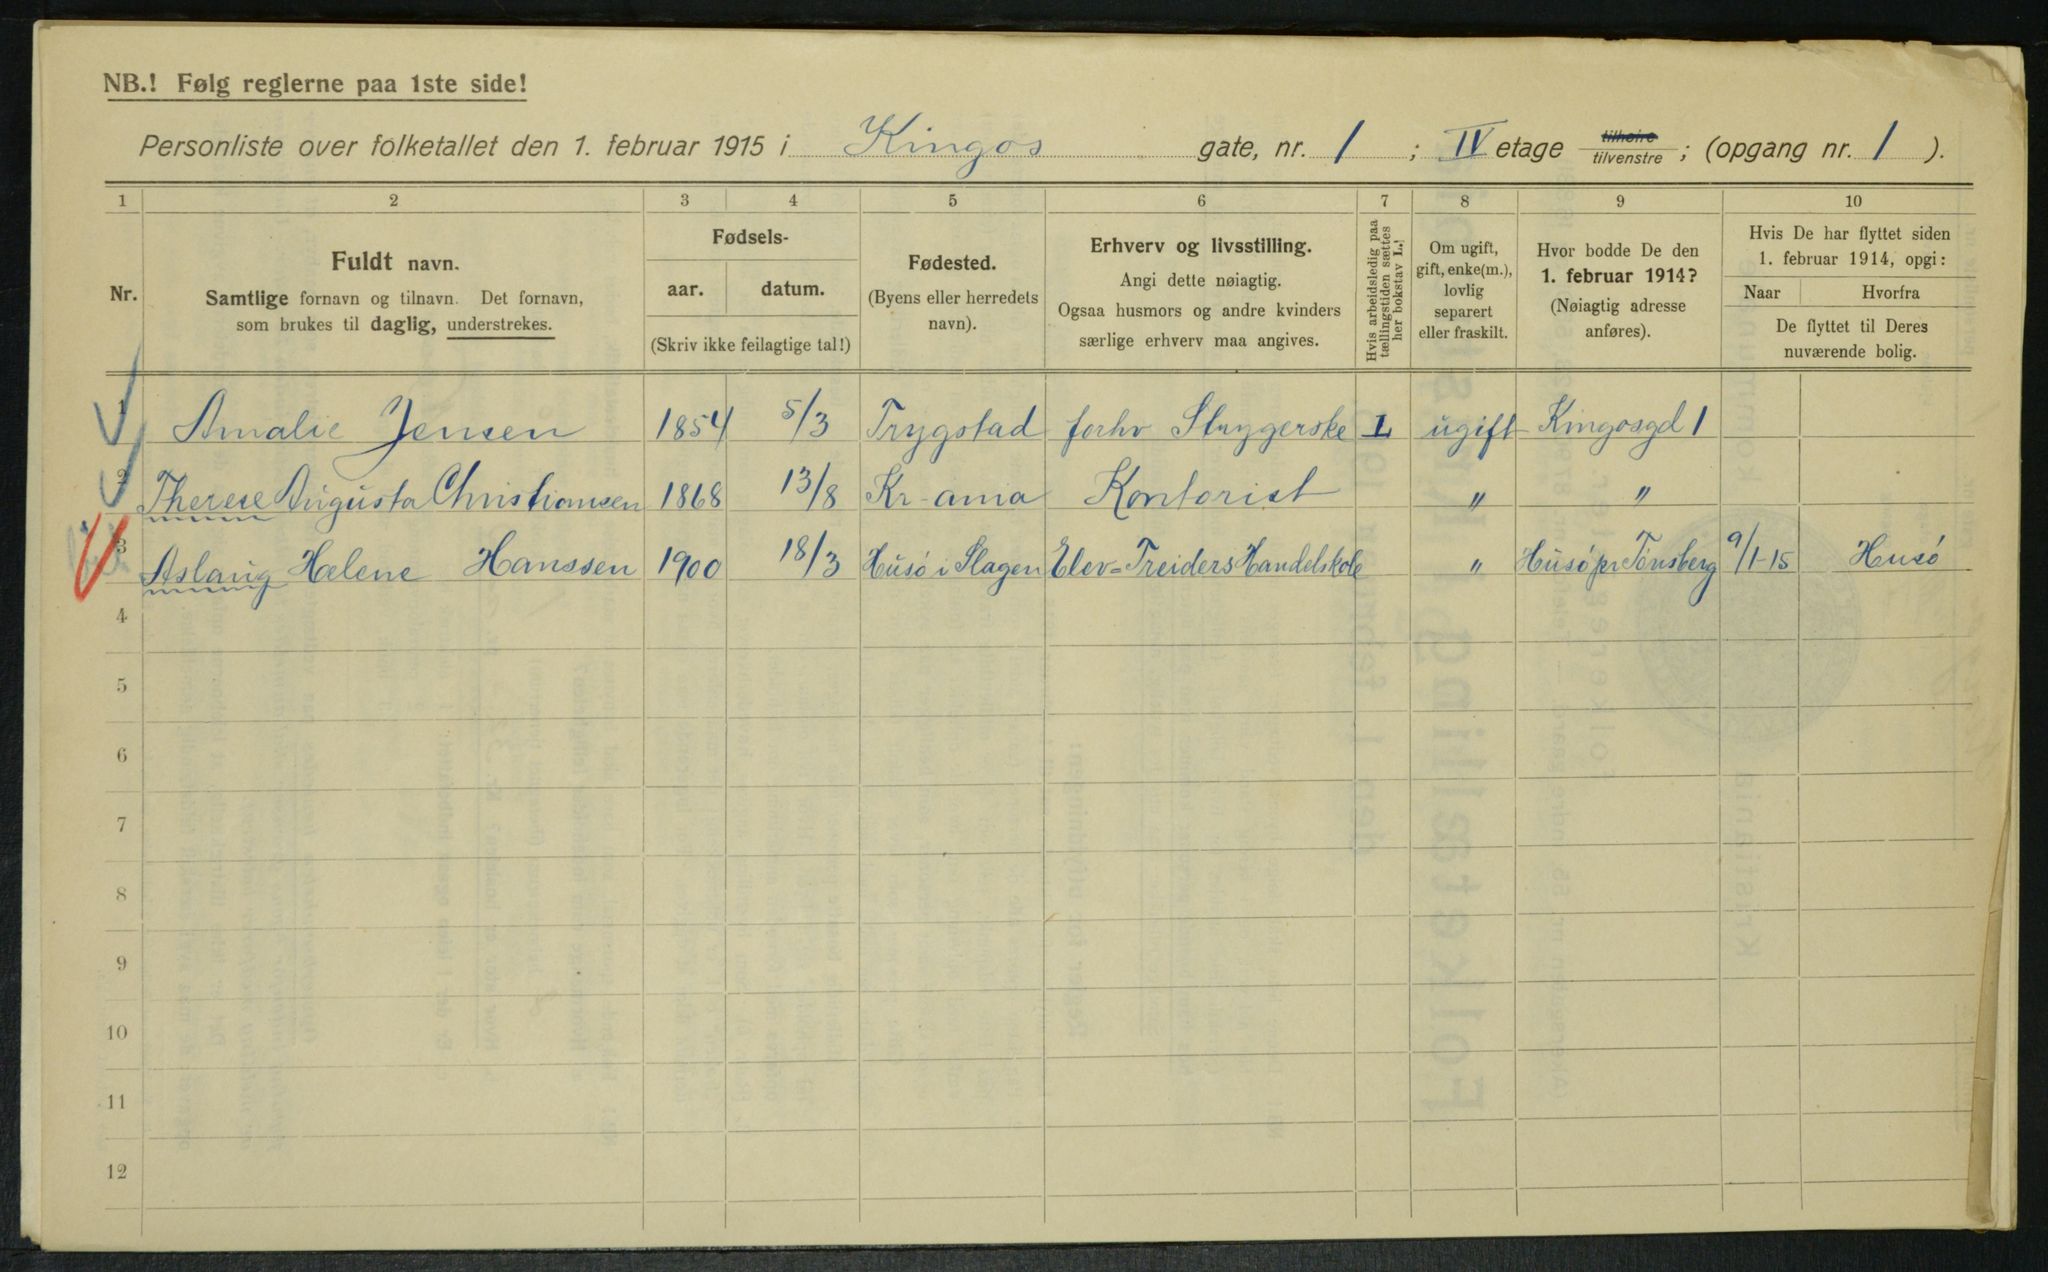 NB.! Følg reglerne paa 1ste side!
Personliste over folketallet den 1. februar 1915 i Kingos gate, nr. 1 ; IV etage tilhøire tilvenstre ; (opgang nr. 1 ).
1 2 3 4 5 6 7 8 9 10
Nr.
Fuldt navn.
Samtlige fornavn og tilnavn. Det fornavn,
som brukes til daglig, understrekes.
Fødsels-
aar. datum.
(Skriv ikke feilagtige tal!)
Fødested.
(Byens eller herredets
navn).
Erhverv og livsstilling.
Angi dette nøiagtig.
Ogsaa husmors og andre kvinders
særlige erhverv maa angives.
Hvis arbeidsledig paa
tællingstiden sættes
her bokstav L!
Om ugift,
gift, enke(m.),
lovlig
separert
eller fraskilt.
Hvor bodde De den
1. februar 1914?
(Nøiagtig adresse
anføres).
Hvis De har flyttet siden
1. februar 1914, opgi:
Naar Hvorfra
De flyttet til Deres
nuværende bolig.
1 Amalie Jensen 1854 5/3 Trygstad forhv Strygerske L ugift Kingosgd 1
2 Therese Augusta Christiansen 1868 13/8 Kr-ania Kontorist " "
3 Aslaug Helene Hanssen 1900 18/3 Husö i Slagen Elev=Treiders Handelskole " Husö pr Tönsberg 9/1-15 Husö
4
5
6
7
8
9
10
11
12